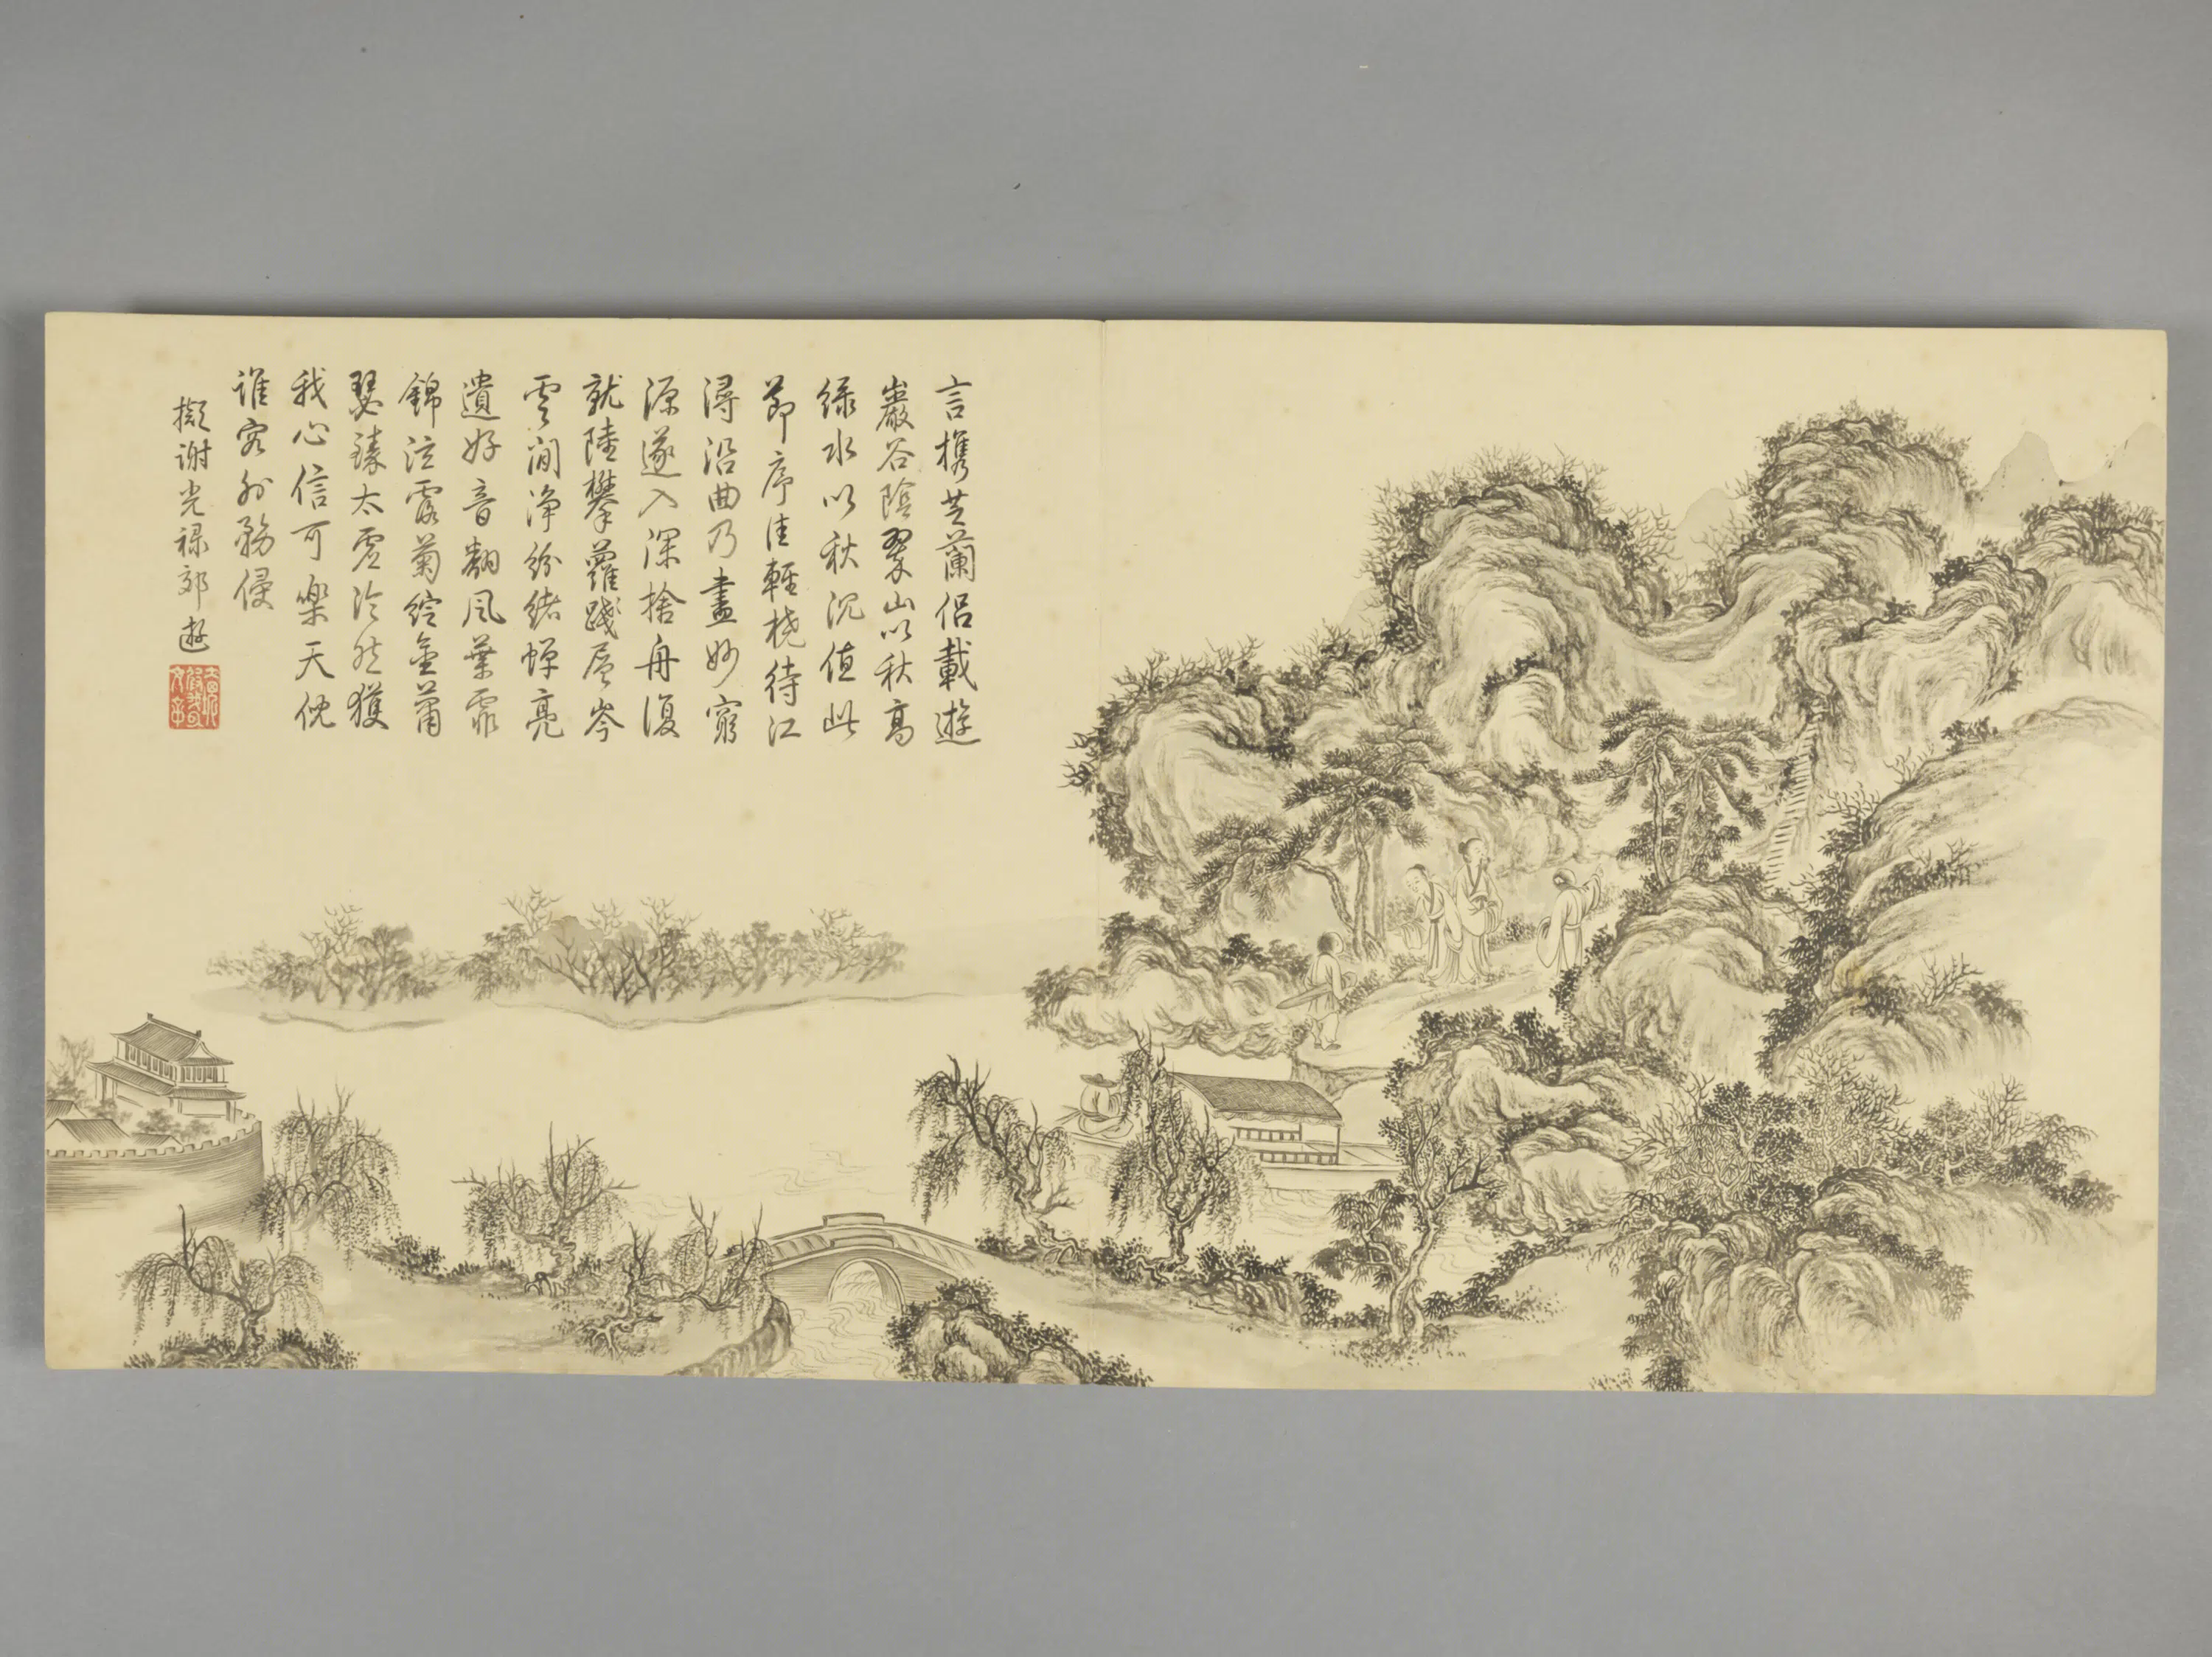 言攜芝蘭侶載遊
巖谷陰翠山以秋高
綠水以秋沉值此
節序佳輕橈待江
潯沿曲乃盡妙窮
源遂入深捨舟復
就陸攀蘿踐層岑
雲間淨紛緒蟬亮
遺好音翻風葉霏
錦泫露菊綻金蕭
瑟臻太虛泠然獲
我心信可樂天倪
誰容外務侵
擬謝光祿郊遊